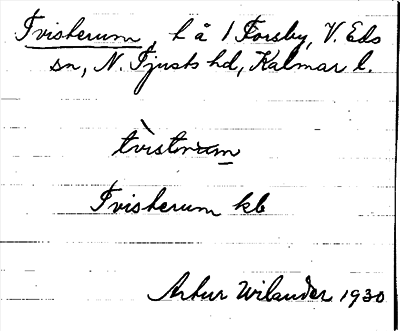 Tvisherum, l å 1 Forsby, V. Eds
sn, N. Tjusts hd, Kalmar l.
Tvisherum kb
Artur Wilander 1930